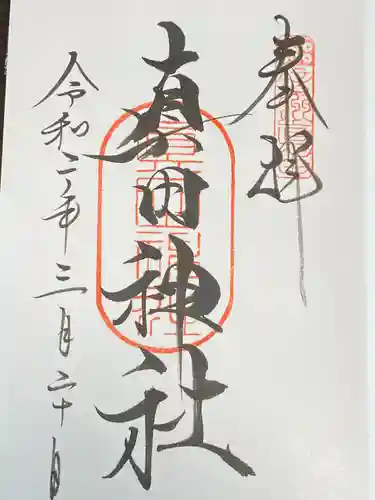 奉拝
真田神社
令和二年三月二十日